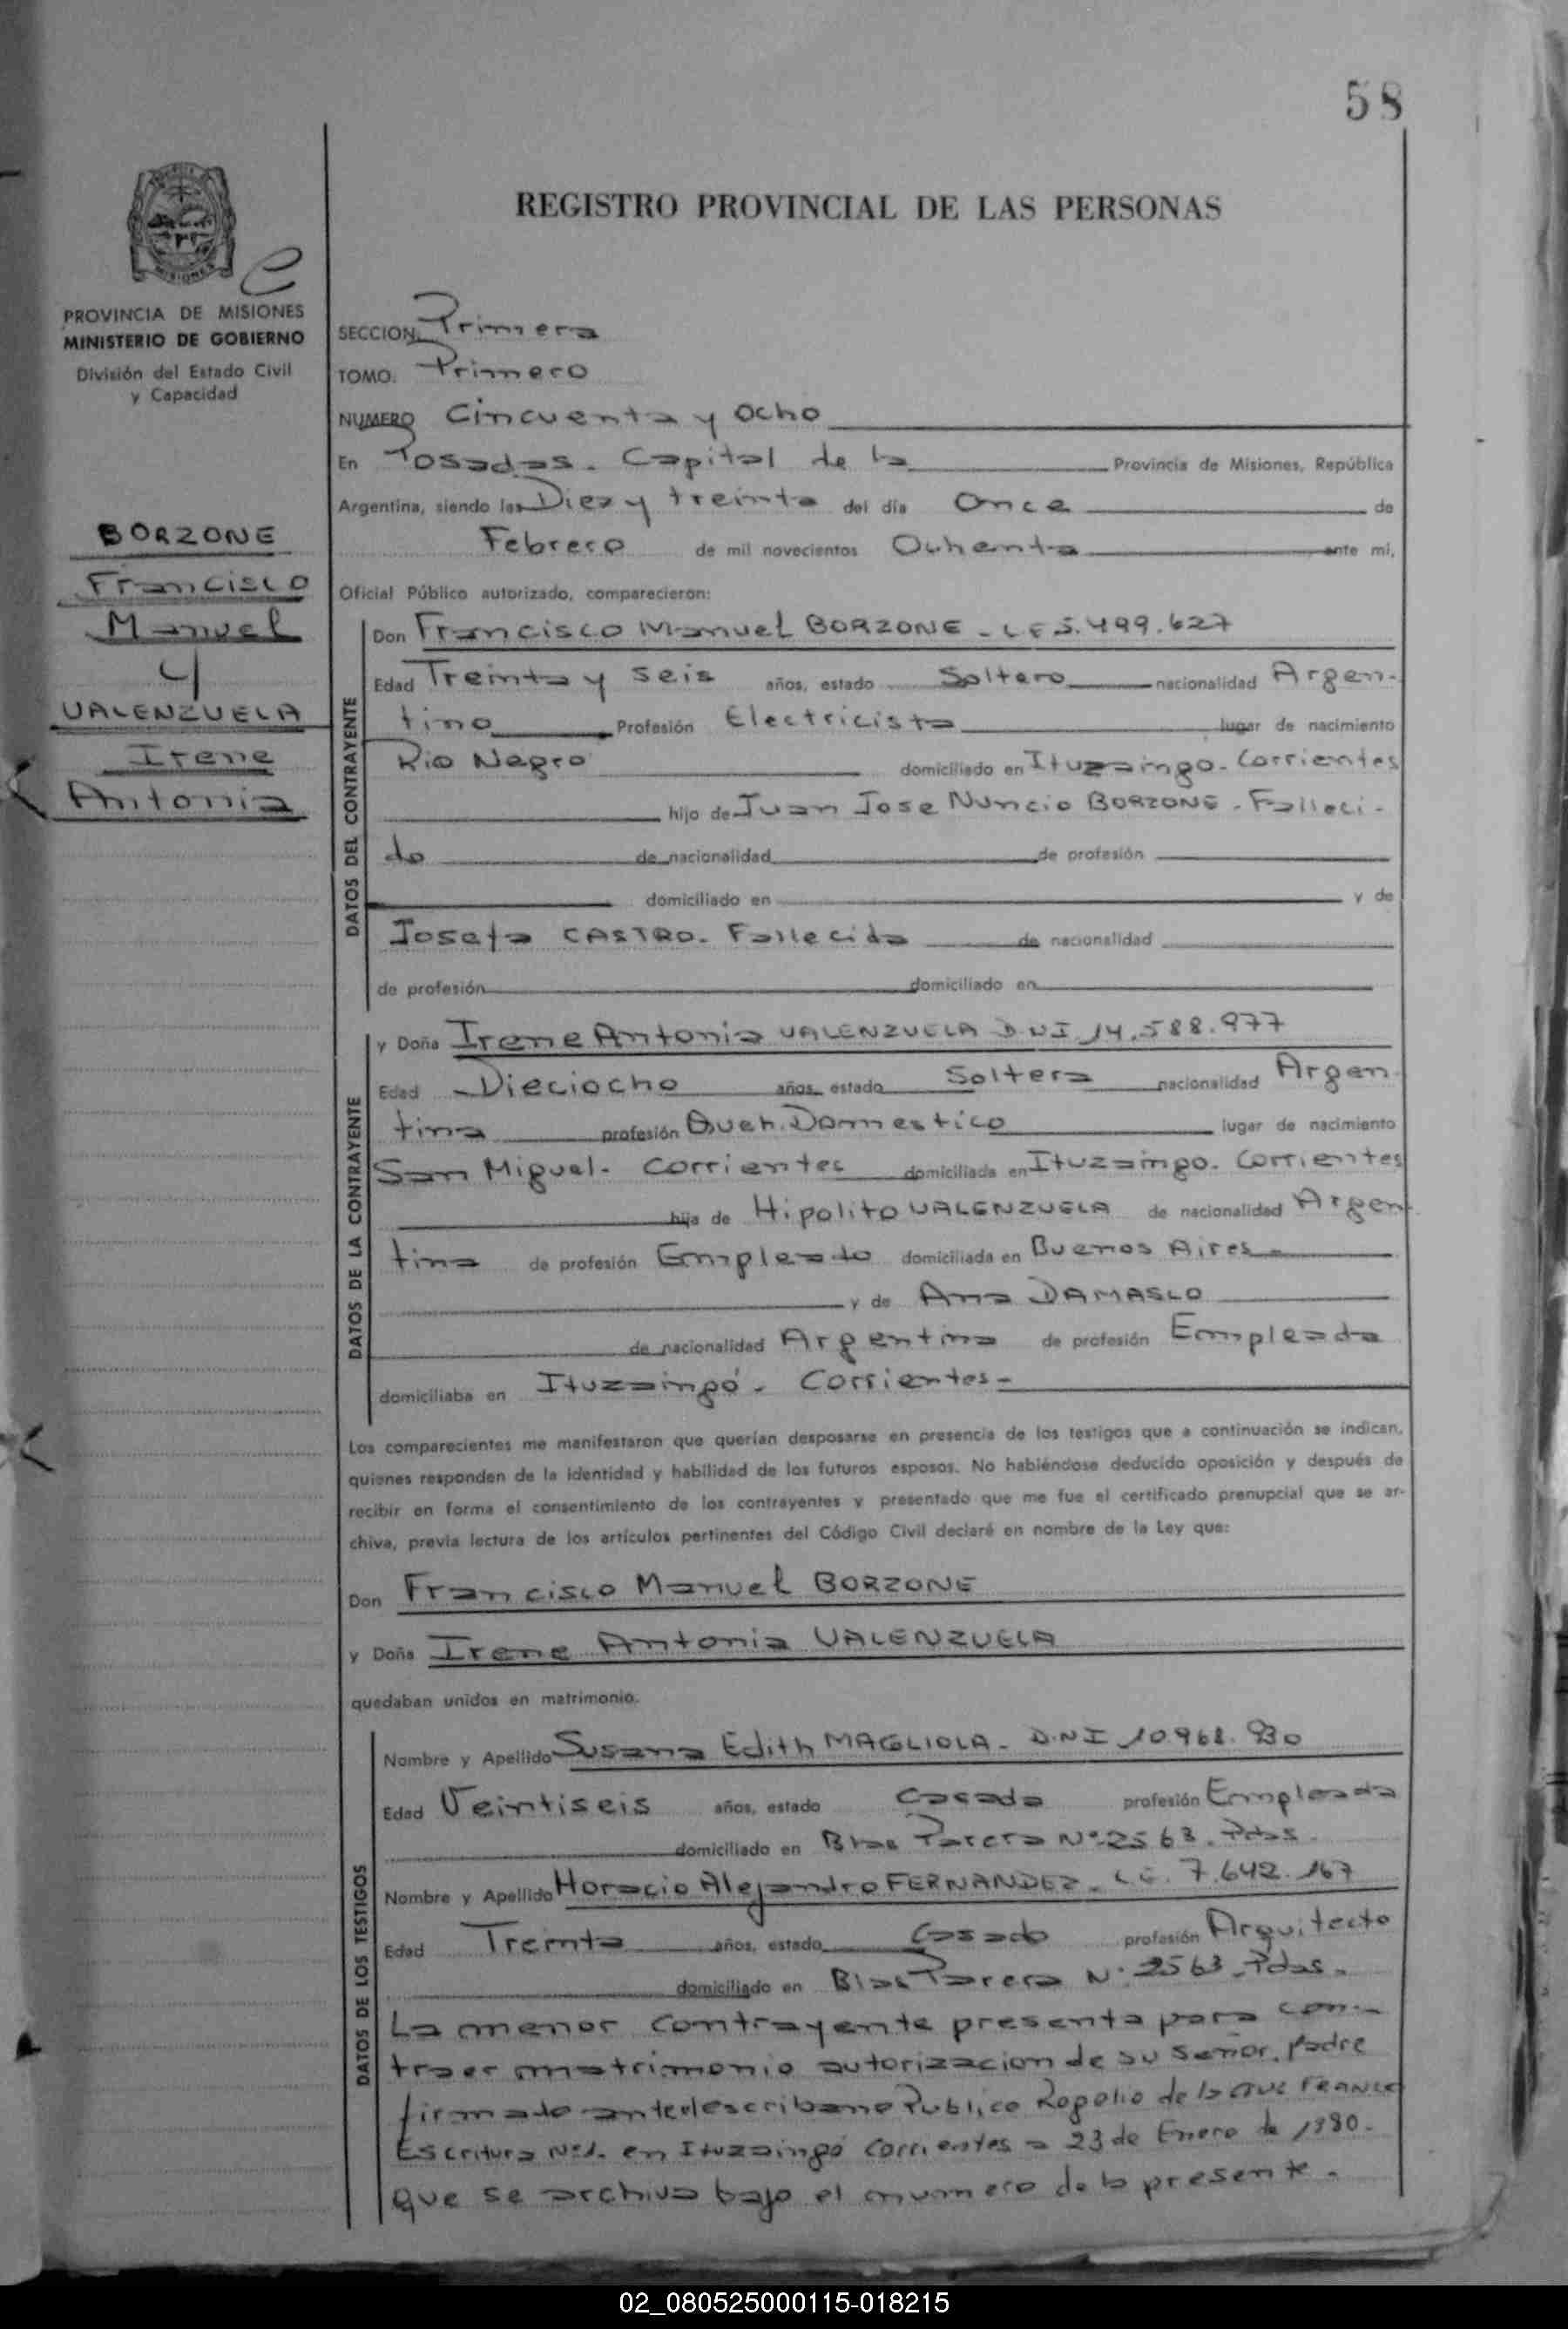 58
REGISTRO PROVINCIAL DE LAS PERSONAS
MISIONES
PROVINCIA DE MISIONES
MINISTERIO DE GOBIERNO
División del Estado Civil
y Capacidad
BORZONE
Francisco
Manuel
y
VALENZUELA
Irene
Antonia
SECCION: Primera
TOMO: Primero
NUMERO Cincuenta y Ocho
En Posadas. Capital de la Provincia de Misiones, República
Argentina, siendo las Diez y treinta del día Once de
Febrero de mil novecientos Ochenta ante mi,
Oficial Público autorizado, comparecieron:
DATOS DEL CONTRAYENTE
Don Francisco Manuel BORZONE - L.E 5.499.627
Edad Treinta y Seis años, estado Soltero nacionalidad Argen-
tino Profesión Electricista lugar de nacimiento
Rio Negro domiciliado en Ituzaingo. Corrientes
hijo de Juan Jose Nuncio BORZONE - Falleci-
do de nacionalidad de profesión
domiciliado en y de
Josefa CASTRO. Fallecida de nacionalidad
de profesión domiciliado en
DATOS DE LA CONTRAYENTE
y Doña Irene Antonia VALENZUELA D.N.I 14.588.977
Edad Dieciocho años, estado Soltera nacionalidad Argen
tina profesión Queh. Domestico lugar de nacimiento
San Miguel. Corrientes domiciliada en Ituzaingo. Corrientes
hija de Hipolito VALENZUELA de nacionalidad Argen
tina de profesión Empleado domiciliada en Buenos Aires
y de Ana DAMASCO
de nacionalidad Argentina de profesión Empleada
domiciliaba en Ituzaingó. Corrientes-
Los comparecientes me manifestaron que querían desposarse en presencia de los testigos que a continuación se indican,
quienes responden de la identidad y habilidad de los futuros esposos. No habiéndose deducido oposición y después de
recibir en forma el consentimiento de los contrayentes y presentado que me fue el certificado prenupcial que se ar-
chiva, previa lectura de los artículos pertinentes del Código Civil declaré en nombre de la Ley que:
Don Francisco Manuel BORZONE
y Doña Irene Antonia VALENZUELA
quedaban unidos en matrimonio.
DATOS DE LOS TESTIGOS
Nombre y Apellido Susana Edith MAGLIOLA - D.N.I 10.968.930
Edad Veintiseis años, estado Casada profesión Empleada
domiciliado en Blas Parera Nº 2563. Pdas.
Nombre y Apellido Horacio Alejandro FERNANDEZ. L.E. 7.642.167
Edad Treinta años, estado Casado profesión Arquitecto
domiciliado en Blas Parera Nº 2563. Pdas.
La menor contrayente presenta para con-
traer matrimonio autorizacion de su señor padre
firmado ante el escribano Publico Rogelio de la FRANCE
Escritura Nº1. en Ituzaingó Corrientes a 23 de Enero de 1980.
que se archiva bajo el numero de la presente.
02_080525000115-018215